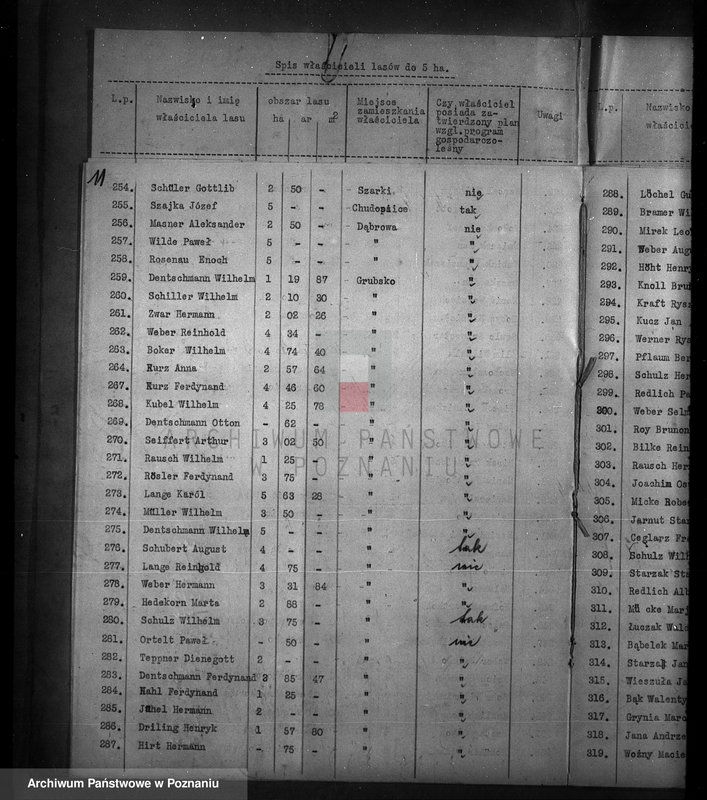 Spis właścicieli lasów do 5 ha.
L.p. Nazwisko i imię właściciela lasu obszar lasu ha ar m2 Miejsce zamieszkania właściciela Czy właściciel posiada zatwierdzony plan wzgl.program gospodarczo-leśny Uwagi
11
254. Schüler Gottlib 2 50 - Szarki nie
255. Szajka Józef 5 - - Chudopsice tak
256. Masner Aleksander 2 50 - Dąbrowa nie
257. Wilde Paweł 5 - - " "
258. Rosenau Enoch 5 - - " "
259. Dentschmann Wilhelm 1 19 87 Grubsko "
260. Schiller Wilhelm 2 10 30 " "
261. Zwar Hermann 2 02 26 " "
262. Weber Reinhold 4 34 - " "
263. Boker Wilhelm 4 74 40 " "
264. Kurz Anna 2 57 64 " "
267. Kurz Ferdynand 4 46 60 " "
268. Kubel Wilhelm 4 25 78 " "
269. Dentschmann Otton - 62 - " "
270. Seiffert Arthur 3 02 50 " "
271. Rausch Wilhelm 1 25 - " "
272. Rösler Ferdynand 3 75 - " "
273. Lange Karól 5 63 28 " "
274. Müller Wilhelm 3 50 - " "
275. Dentschmann Wilhelm 5 - - " "
276. Schubert August 4 - - " tak
277. Lange Reinhold 4 75 - " nie
278. Weber Hermann 3 31 84 " "
279. Hedekorn Marta 2 88 - " "
280. Schulz Wilhelm 3 75 - " tak
281. Ortelt Paweł - 50 - " nie
282. Teppner Dienegott 2 - - " "
283. Dentschmann Ferdynand 3 85 47 " "
284. Hahl Ferdynand 1 25 - " "
285. Jähel Hermann 2 - - " "
286. Driling Henryk 1 57 80 " "
287. Hirt Hermann - 75 - " "
L.p. Nazwisko właścici
288. Löchel Gu
289. Bramer Wi
290. Mirek Leo
291. Weber Augu
292. Höht Henry
293. Knoll Bru
294. Kraft Rysz
295. Kucz Jan
296. Werner Rys
297. Pflaum Ber
298. Schulz Her
299. Redlich Pa
300. Weber Selm
301. Roy Brunon
302. Bilke Rein
303. Rausch Her
304. Joachim Os
305. Micke Robe
306. Jarnut Sta
307. Ceglarz Fr
308. Schulz Wil
309. Starzak St
310. Redlich Alb
311. Mücke Mari
312. Łuczak Walc
313. Bąbelek Mar
314. Starzak Jan
315. Wieszuła Ja
316. Bąk Walenty
317. Grynia Marc
318. Jana Andrze
319. Woźny Macie
ARCHIWUM PAŃSTWOWE
W POZNANIU
Archiwum Państwowe w Poznaniu